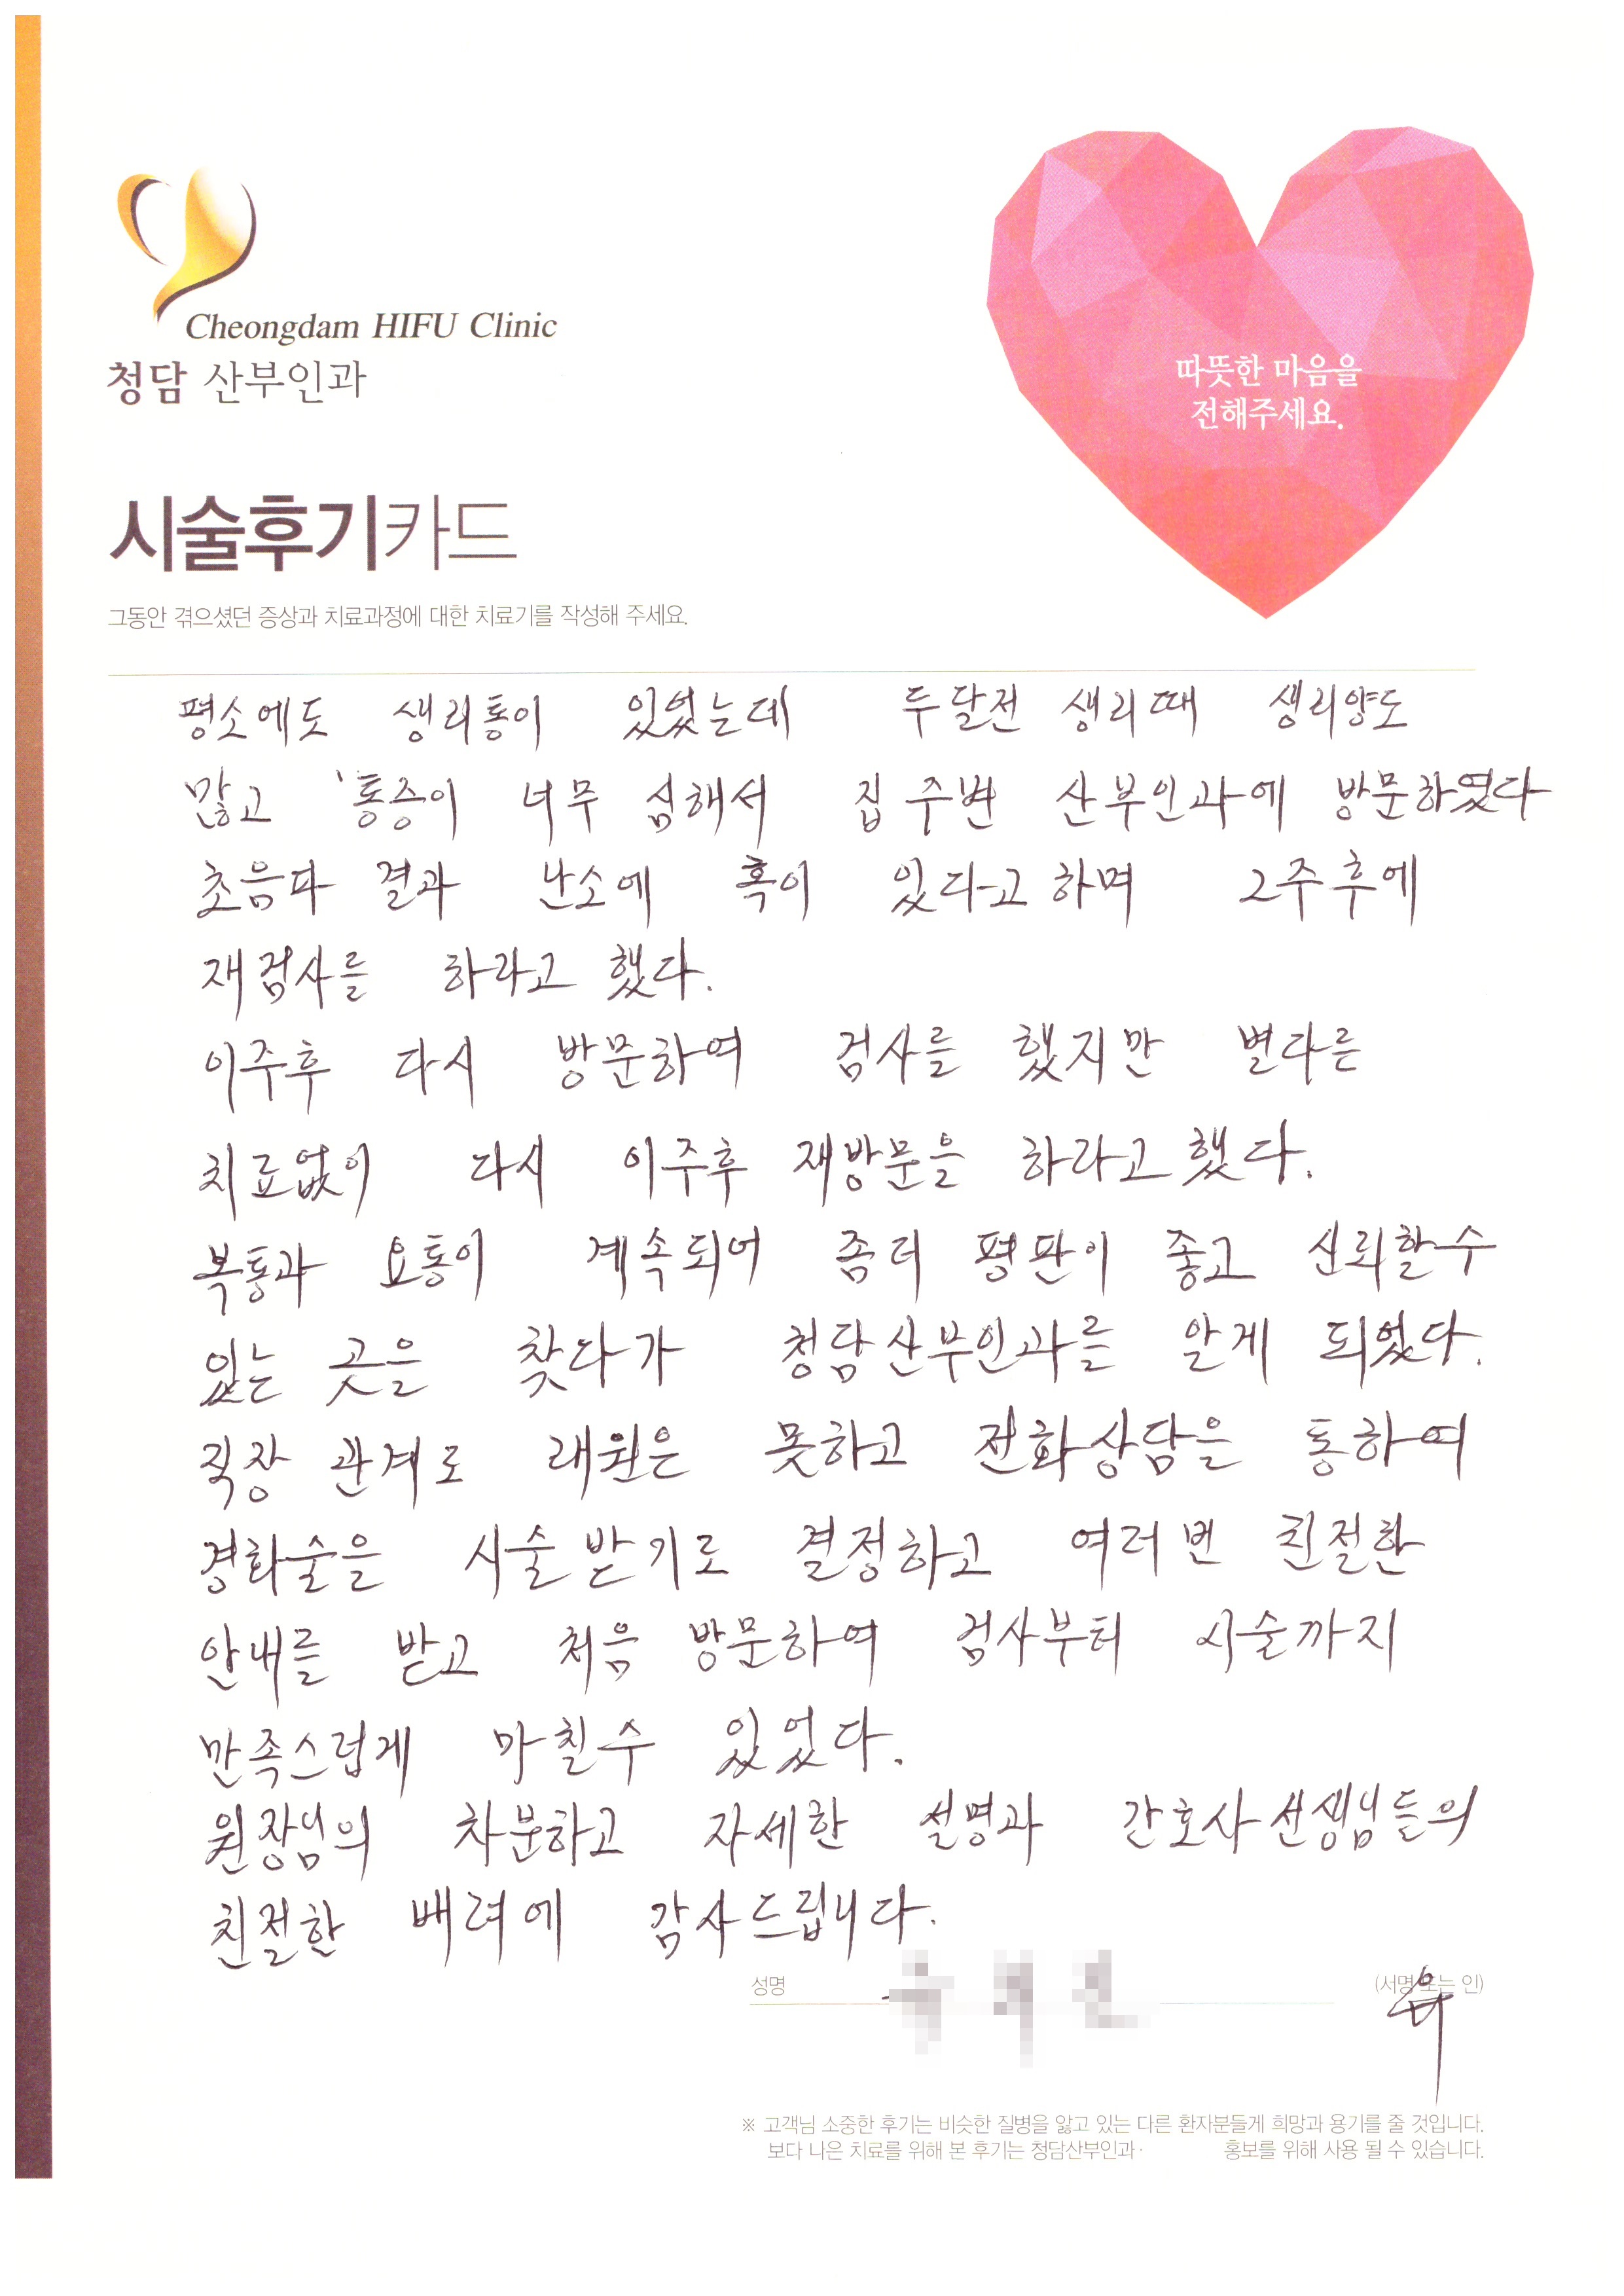 Cheongdam HIFU Clinic
청담 산부인과
따뜻한 마음을
전해주세요.
시술후기카드
그동안 겪으셨던 증상과 치료과정에 대한 치료기를 작성해 주세요.
평소에도 생리통이 있었는데 두달전 생리때 생리양도
많고 통증이 너무 심해서 집 주변 산부인과에 방문하였다
초음파 결과 난소에 혹이 있다고 하며 2주후에
재검사를 하라고 했다.
이주후 다시 방문하여 검사를 했지만 별다른
치료없이 다시 이주후 재방문을 하라고 했다.
복통과 요통이 계속되어 좀더 평판이 좋고 신뢰할수
있는 곳을 찾다가 청담산부인과를 알게 되었다.
직장 관계로 래원은 못하고 전화상담을 통하여
경화술을 시술받기로 결정하고 여러번 친절한
안내를 받고 처음 방문하여 검사부터 시술까지
만족스럽게 마칠수 있었다.
원장님의 차분하고 자세한 설명과 간호사선생님들의
친절한 배려에 감사드립니다.
성명 (서명 또는 인)
※ 고객님 소중한 후기는 비슷한 질병을 앓고 있는 다른 환자분들게 희망과 용기를 줄 것입니다.
보다 나은 치료를 위해 본 후기는 청담산부인과· 홍보를 위해 사용 될 수 있습니다.